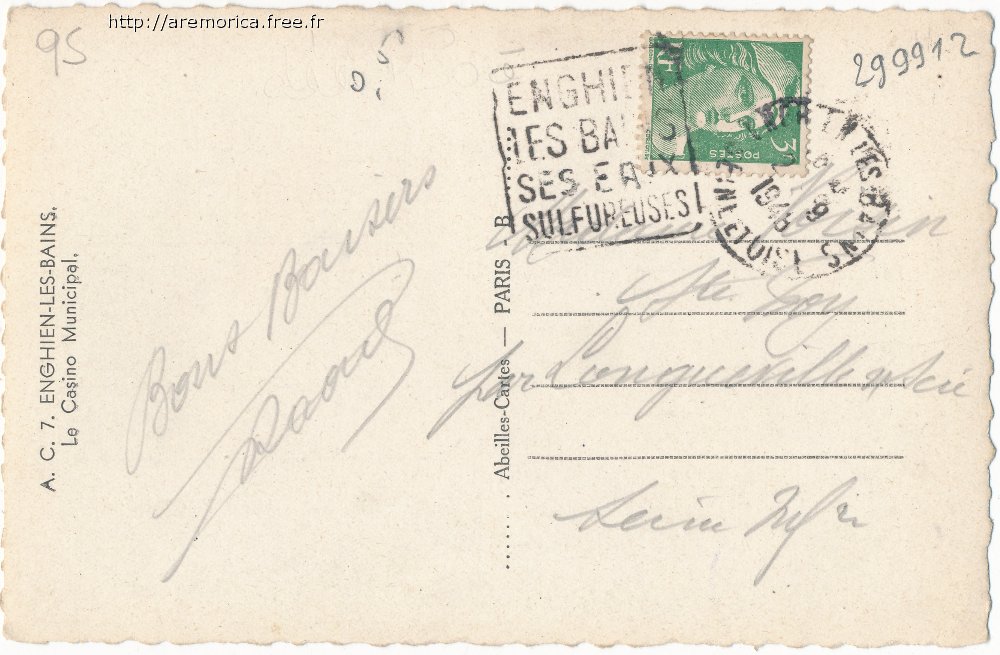 http://aremorica.free.fr
95
299912
ENGHIEN
LES BA
SES EAUX
SULFUREUSES
RF
POSTES
3
LES-BAINS
SEINE ET OISE
A. C. 7. ENGHIEN-LES-BAINS.
Le Casino Municipal.
Abeilles-Cartes — PARIS
Bons Baisers
Raoul
par Longueville s/ Scie
Seine Infre